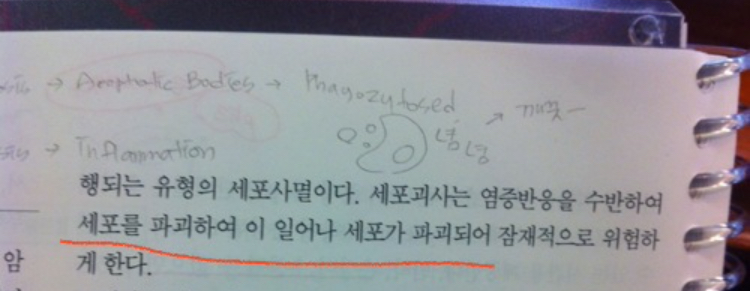 → Apophatic Bodies → Phagozytosed
→ 깨꿋—
냠
냠
→ Inflammation
행되는 유형의 세포사멸이다. 세포괴사는 염증반응을 수반하여
세포를 파괴하여 이 일어나 세포가 파괴되어 잠재적으로 위험하
암
게 한다.